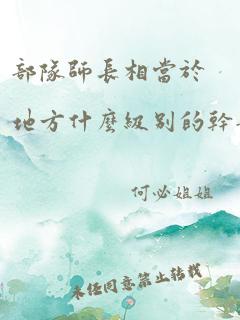 部隊師長相當於
地方什麼級別的幹
何必姐姐
未经同意禁止转载